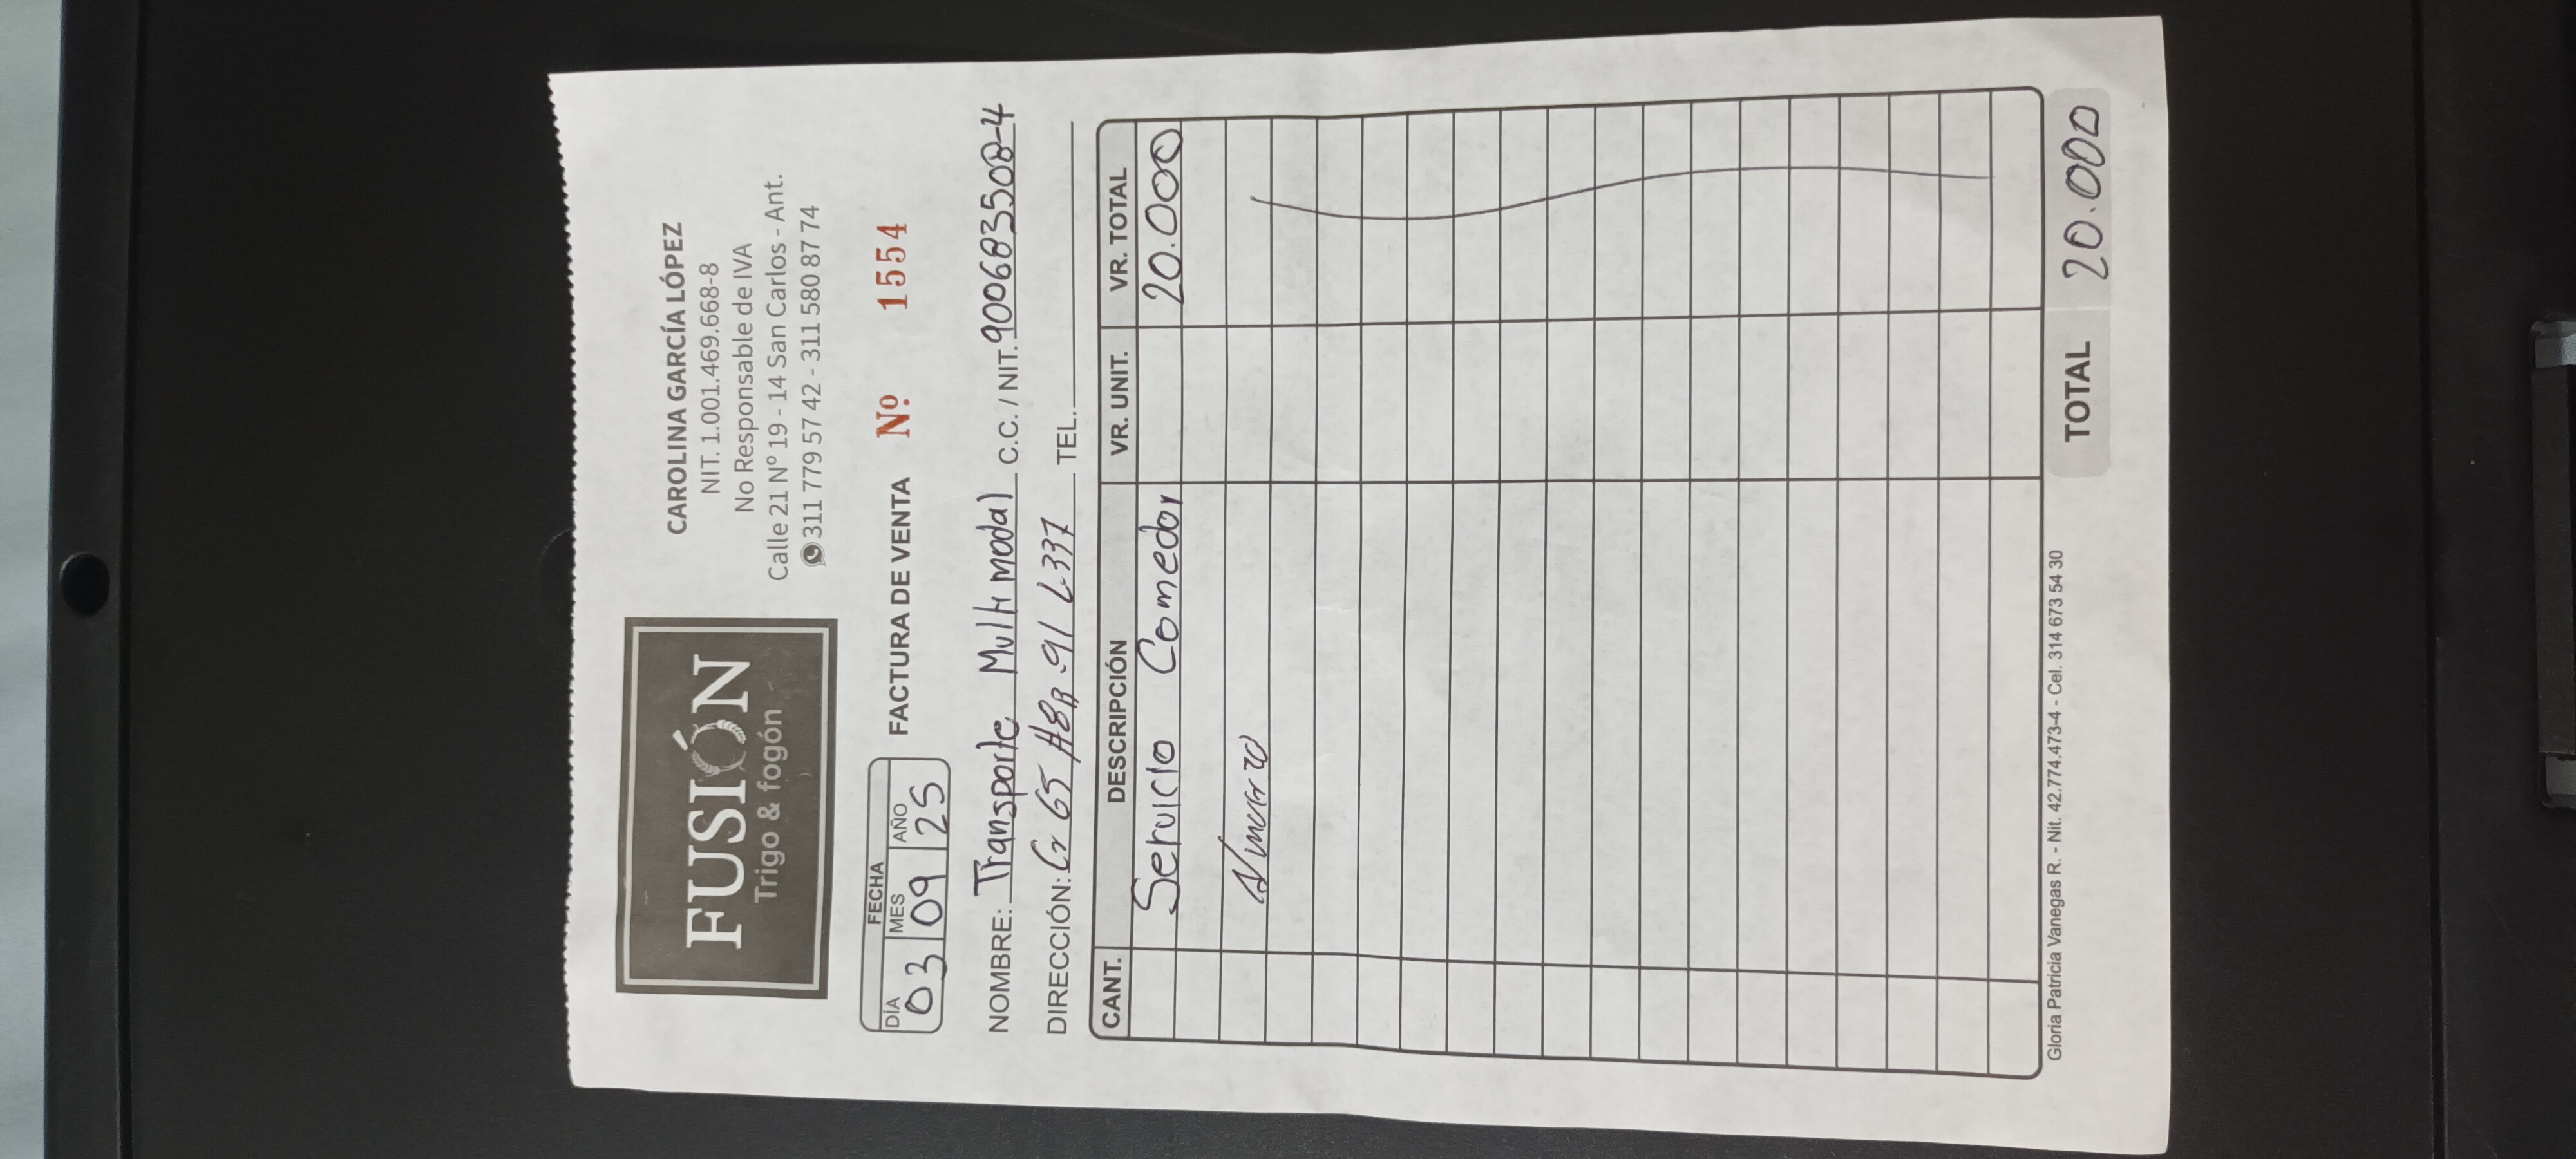 FUSIÓN
Trigo & fogón
CAROLINA GARCÍA LÓPEZ
NIT. 1.001.469.668-8
No Responsable de IVA
Calle 21 Nº 19 - 14 San Carlos - Ant.
311 779 57 42 - 311 580 87 74
FECHA
DÍA MES AÑO
03 09 25
FACTURA DE VENTA Nº 1554
NOMBRE: Transporte Multimodal C.C. / NIT. 900683508-4
DIRECCIÓN: Cr 65 #8B-91 L-337 TEL.
CANT. DESCRIPCIÓN VR. UNIT. VR. TOTAL
Servicio Comedor 20.000
Almuerzo
TOTAL 20.000
Gloria Patricia Vanegas R. - Nit. 42.774.473-4 - Cel. 314 673 54 30